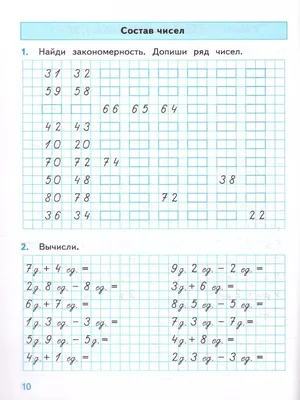 Состав чисел
1. Найди закономерность. Допиши ряд чисел.
31 32
59 58
66 65 64
42 43
10 20
70 72 74
50 48 38
80 78 72
36 34 22
2. Вычисли.
7д. + 4 ед. = 9д. 2 ед. – 2 ед. =
2д. 8 ед. – 8 ед. = 3д. + 6 ед. =
6д. + 7 ед. = 8д. 5 ед. – 5 ед. =
1д. 3 ед. – 3 ед. = 7д. 3 ед. – 7д. =
5д. 9 ед. – 5д. = 4д. + 8 ед. =
4д. + 1 ед. = 2д. 3 ед. – 3 ед. =
10